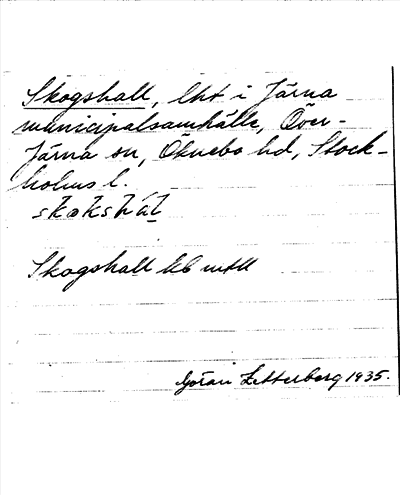 Skogshall, lht i Järna
municipalsamhälle, Över-
Järna sn, Öknebo hd, Stock-
holms l.
Skogshall
Göran Zetterberg 1935.